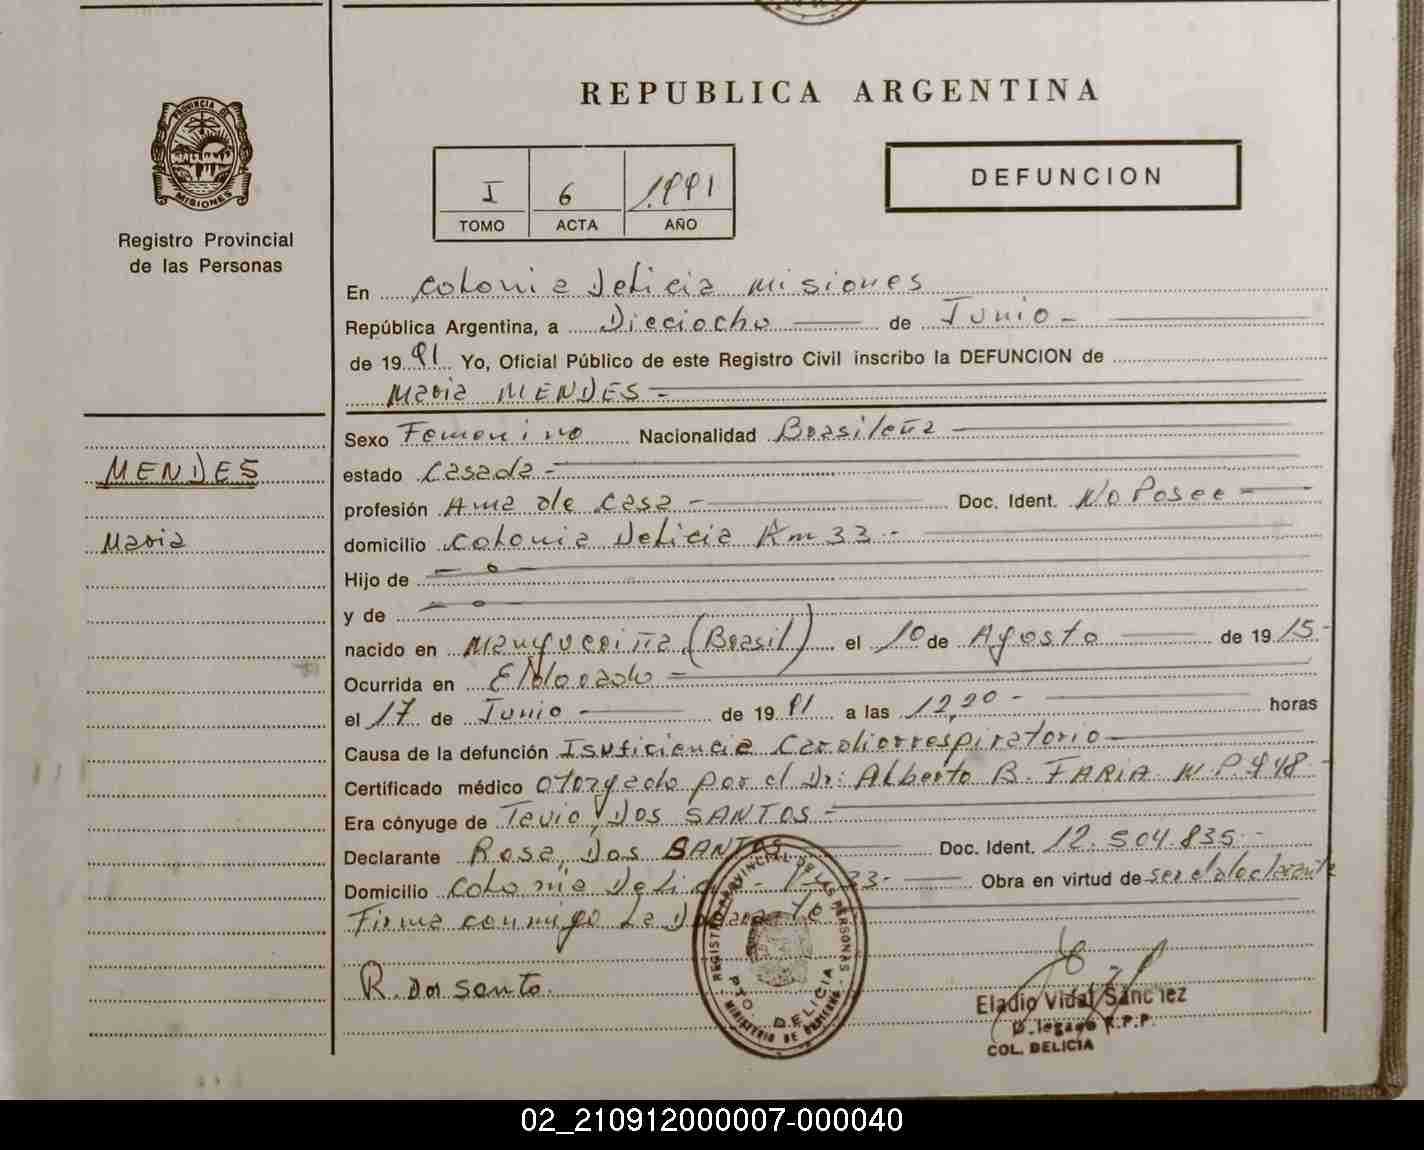 REPUBLICA ARGENTINA
PROVINCIA DE
MISIONES
Registro Provincial
de las Personas
I 6 1991
TOMO ACTA AÑO
DEFUNCION
En Colonia Delicia Misiones
República Argentina, a Dieciocho de Junio -
de 19 91 Yo, Oficial Público de este Registro Civil inscribo la DEFUNCION de
Maria MENDES =
MENDES
Maria
Sexo Femenino Nacionalidad Brasileña
estado Casada -
profesión Ama de Casa - Doc. Ident. No Posee -
domicilio Colonia Delicia Km 33 -
Hijo de - o -
y de - o -
nacido en (Brasil) el 10 de Agosto de 19 15 -
Ocurrida en Eldorado
el 17 de Junio - de 19 91 a las 12,20 - horas
Causa de la defunción Insuficiencia Cardiorrespiratorio
Certificado médico otorgado por el Dr: Alberto B. FARIA M.P. 448 -
Era cónyuge de Tevio, DOS SANTOS -
Declarante Rosa, Dos SANTOS Doc. Ident. 12.504.835 -
Domicilio Colonia Delicia - Km 33 - Obra en virtud de ser el declarante
Firma conmigo La Declarante
R. Dos Santo.
REGISTRO PROVINCIAL DE LAS PERSONAS
PTO. DELICIA
MINISTERIO DE GOBIERNO
Eladio Vidal Sánchez
Delegado R.P.P.
COL. DELICIA
02_210912000007-000040